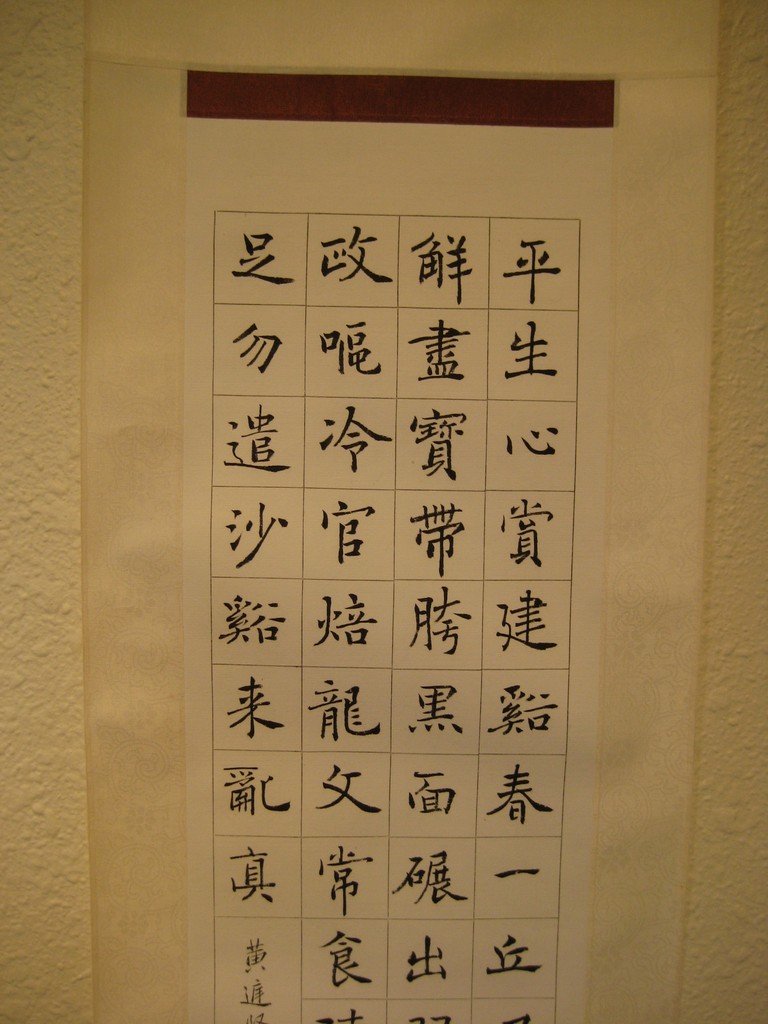 平生心賞建谿春一丘
鮮盡寶帶胯黑面碾出
政嘔冷官焙龍文常食
足勿遣沙谿来亂真
黄